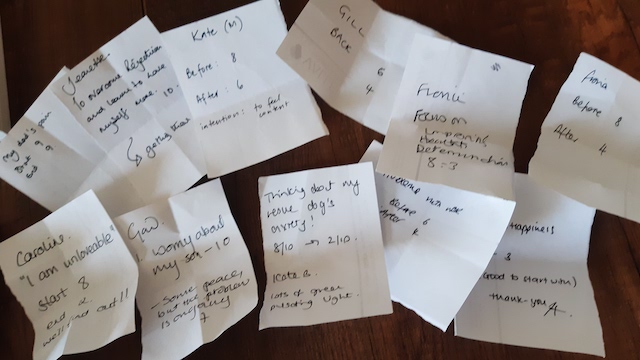 My dad's pain
Start 9
Jeanette
To overcome Rejection
and learn to love
myself more. 10
going down
Kate (M)
Before: 8
After: 6
intention: to feel
content
GILL
BACK
6
4
Focus on
Improving
Determination
8:3
Before 8
After 4
Caroline
"I am unloveable"
start 8
end 2
well not out!!
Gav.
I worry about
my son - 10
- Some peace,
but the problem
is ongoing
7
Thinking about my
rescue dog's
anxiety!
8/10 → 2/10.
Kate B.
lots of green
pulsating light.
Before 6
After
Happiness
8
good to start with)
thank-you